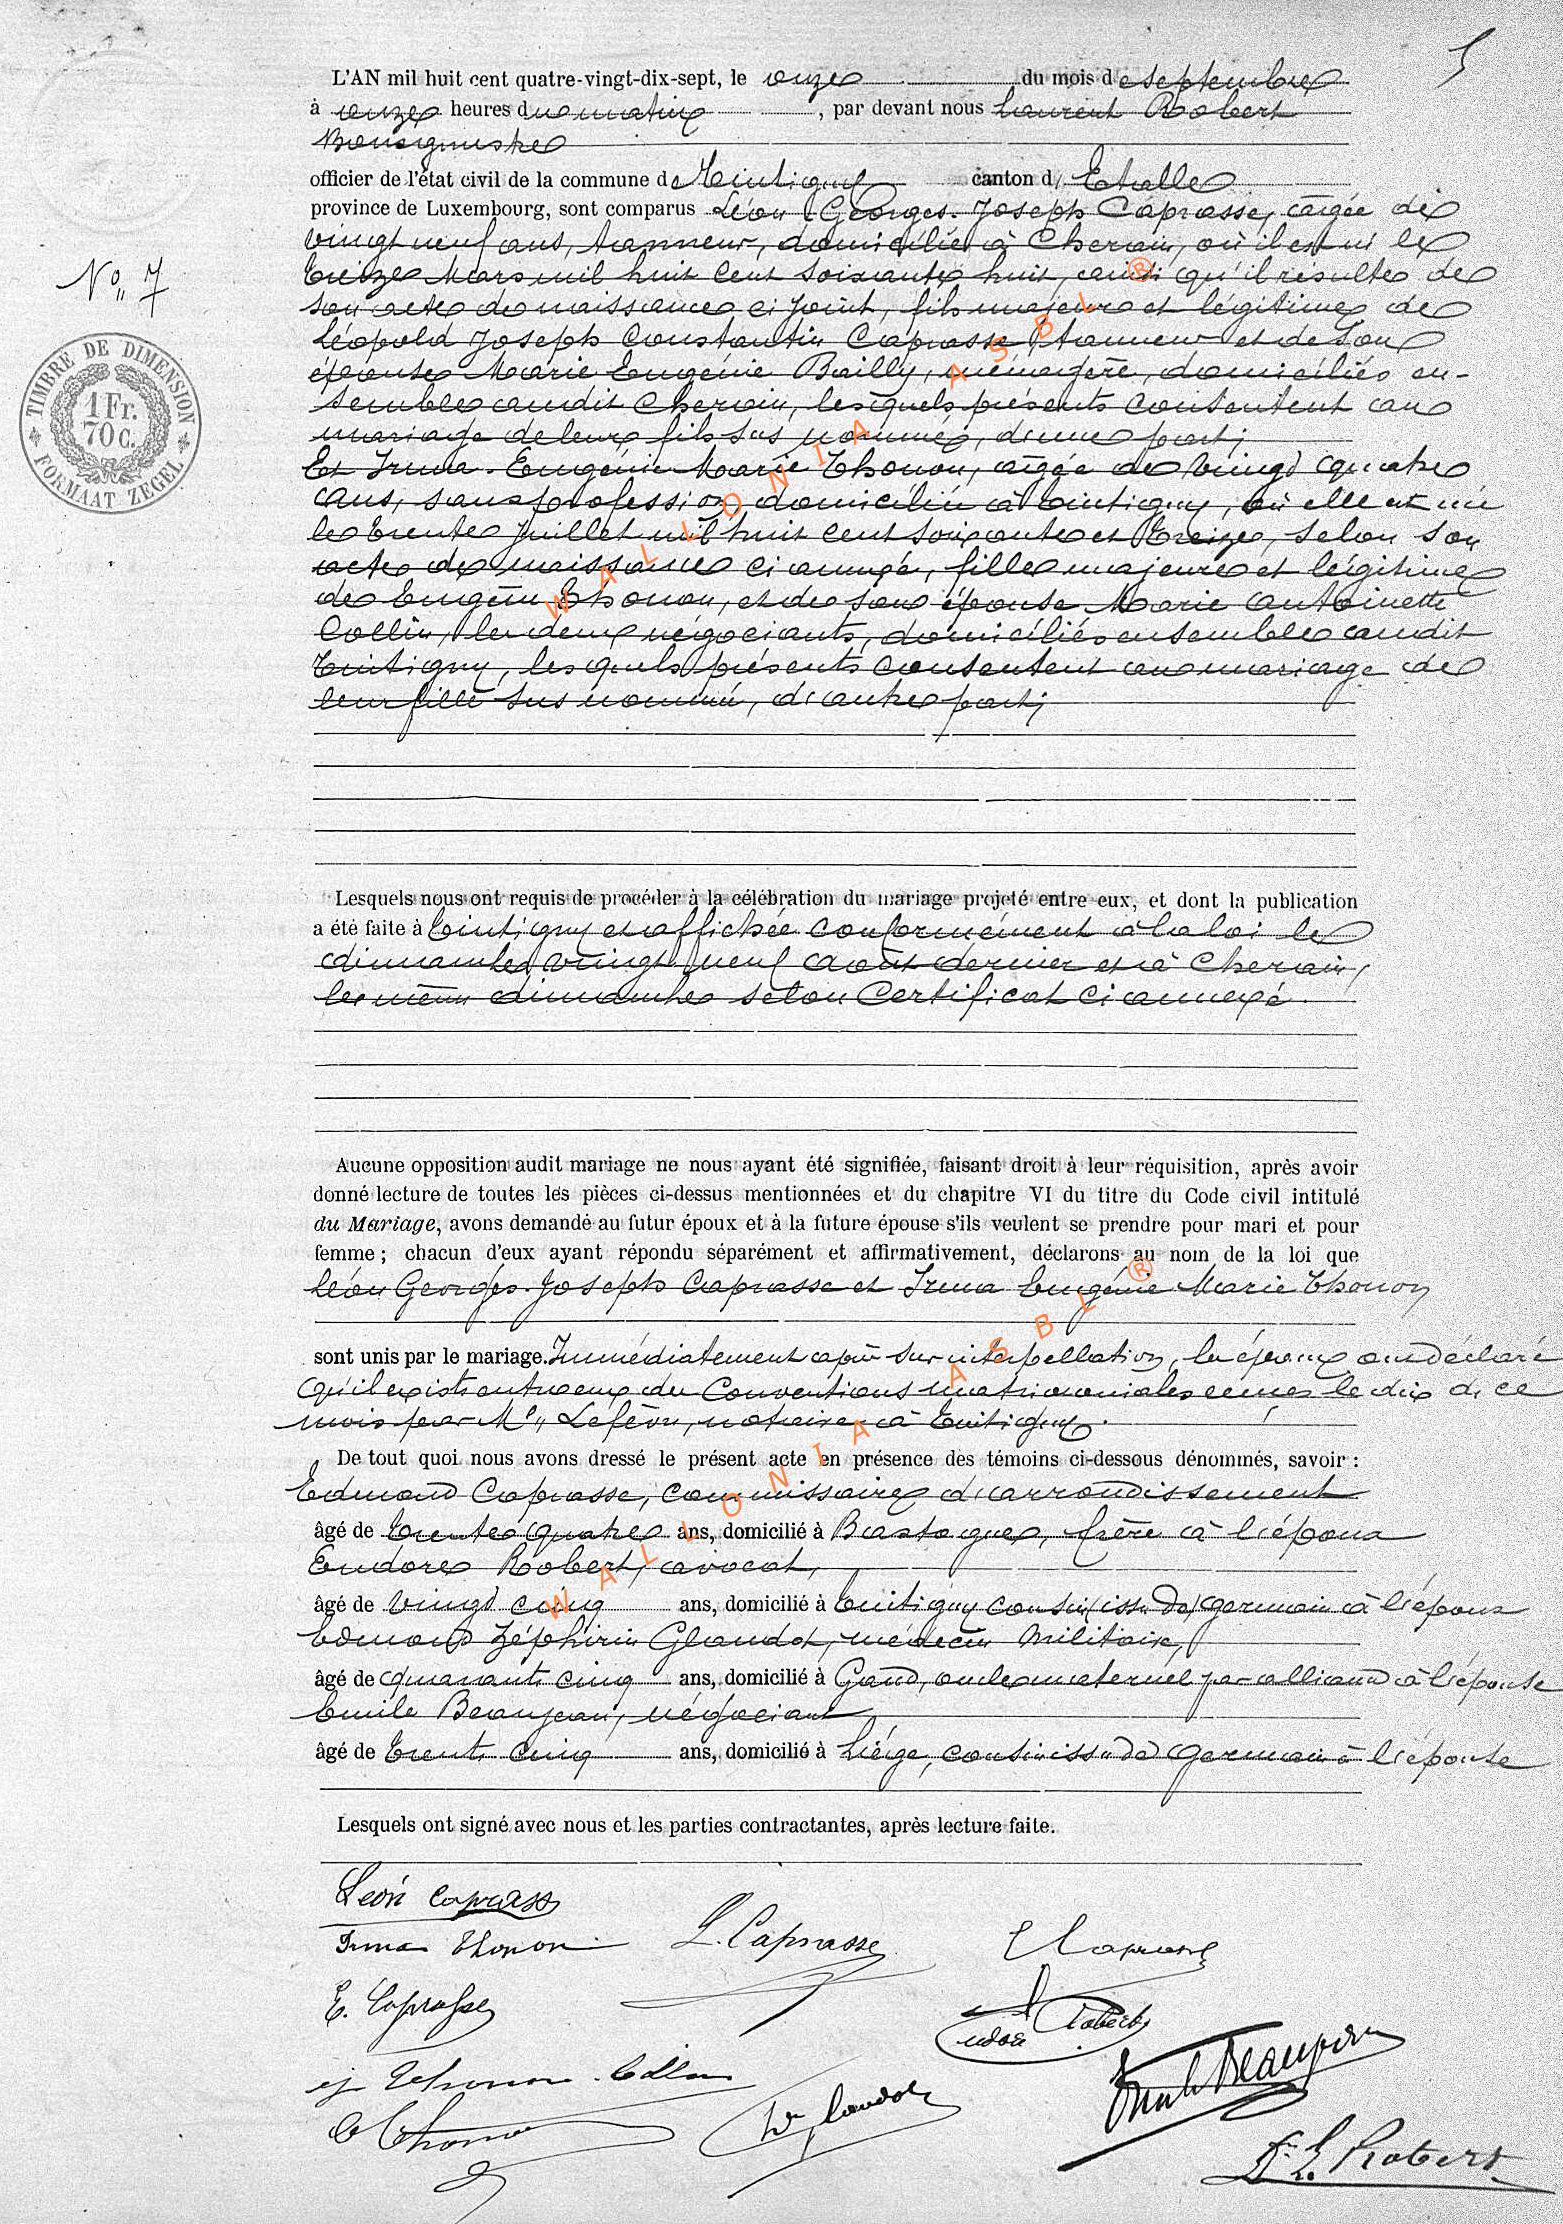 5
L'AN mil huit cent quatre-vingt-dix-sept, le onze du mois de septembre
à onze heures du matin, par devant nous Laurent Robert
Bourgmestre
officier de l'état civil de la commune de Tintigny canton d'Etalle
province de Luxembourg, sont comparus Léon Georges Joseph Caprasse, âgée de
vingt neuf ans, tanneur, domicilié à Cherain, où il est né le
treize Mars mil huit cent soixante huit, ainsi qu'il résulte de
No 7
son acte de naissance ci joint, fils majeur et légitime de
Léopold Joseph Constantin Caprasse, tanneur et de son
épouse Marie Eugénie Bailly, ménagère, domiciliés en-
semble audit Cherain, lesquels présents consentent au
mariage de leur fils sus nommé, d'une part;
TIMBRE DE DIMENSION
1 Fr.
70 C.
FORMAAT ZEGEL
Et Irma Eugénie Marie Thonon, âgée de vingt quatre
ans, sans profession, domicilié à Tintigny, où elle est née
le trente Juillet mil huit cent soixante et treize, selon son
acte de naissance ci annexé, fille majeure et légitime
de Eugène Thonon, et de son épouse Marie Antoinette
Collin, les deux négociants, domiciliés ensemble audit
Tintigny, lesquels présents consentent au mariage de
leur fille sus nommé, d'autre part;
Lesquels nous ont requis de procéder à la célébration du mariage projeté entre eux, et dont la publication
a été faite à Tintigny et affichée conformément à la loi le
dimanche vingt neuf août dernier et à Cherain,
le même dimanche selon certificat ci annexé.
Aucune opposition audit mariage ne nous ayant été signifiée, faisant droit à leur réquisition, après avoir
donné lecture de toutes les pièces ci-dessus mentionnées et du chapitre VI du titre du Code civil intitulé
du Mariage, avons demandé au futur époux et à la future épouse s'ils veulent se prendre pour mari et pour
femme ; chacun d'eux ayant répondu séparément et affirmativement, déclarons au nom de la loi que
Léon Georges Joseph Caprasse et Irma Eugénie Marie Thonon
sont unis par le mariage. Immédiatement après sur interpellation, les époux ont déclaré
qu'il existe entre eux des conventions matrimoniales reçues le dix de ce
mois par Me Lefèvre, notaire à Tintigny.
De tout quoi nous avons dressé le présent acte en présence des témoins ci-dessous dénommés, savoir :
Edmond Caprasse, commissaire d'arrondissement
âgé de trente quatre ans, domicilié à Bastogne, frère à l'époux
Eudore Robert, avocat,
âgé de vingt cinq ans, domicilié à Tintigny cousin issu de germain à l'époux
Edmond Zéphirin Glaudot, médecin militaire,
âgé de quarante cinq ans, domicilié à Gand, oncle maternel par alliance à l'épouse
Emile Beaujean, négociant
âgé de trente cinq ans, domicilié à Liége, cousin issu de germain à l'épouse
Lesquels ont signé avec nous et les parties contractantes, après lecture faite.
Léon Caprasse
Irma Thonon L. Caprasse E Caprasse
E. Caprasse Eudore Robert
Thonon Collin Emile Beaujean
E Thonon Dr Glaudot
Dr L. Robert
WALLONIA ASBL ®
WALLONIA ASBL ®